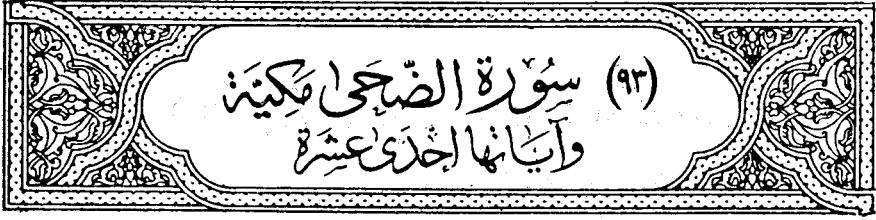 (٩٣) سُورَة الضُّحَىٰ مَكِيَّة
وَآيَاتهَا إِحْدَىٰ عَشْرَة